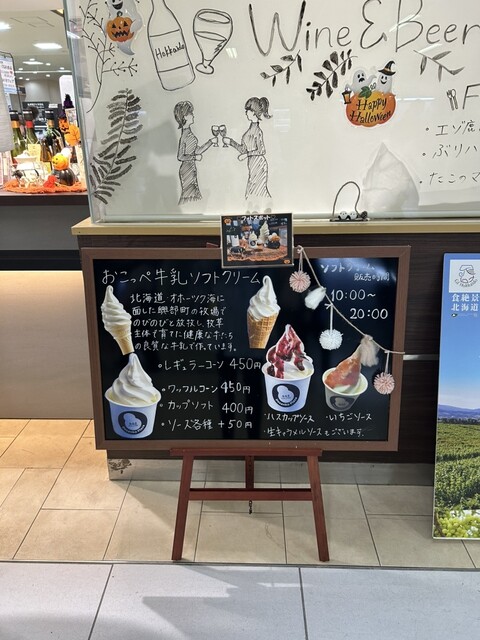 Wine & Beer
Hokkaido
Happy
Halloween
・エゾ鹿
・ぶりハ
・たこのマ
フォトスポット
おこっぺ牛乳ソフトクリーム
ソフトクリーム
販売時間
10:00～
20:00
北海道 オホーツク海に
面した興部町の牧場で
のびのびと放牧し、牧草
主体で育てた健康な牛たち
の良質な牛乳で作っています。
・レギュラーコーン 450円
・ワッフルコーン 450円
・カップソフト 400円
・ソース各種 +50円
・ハスカップソース ・いちごソース
・生キャラメルソースもございます。
食絶景
北海道